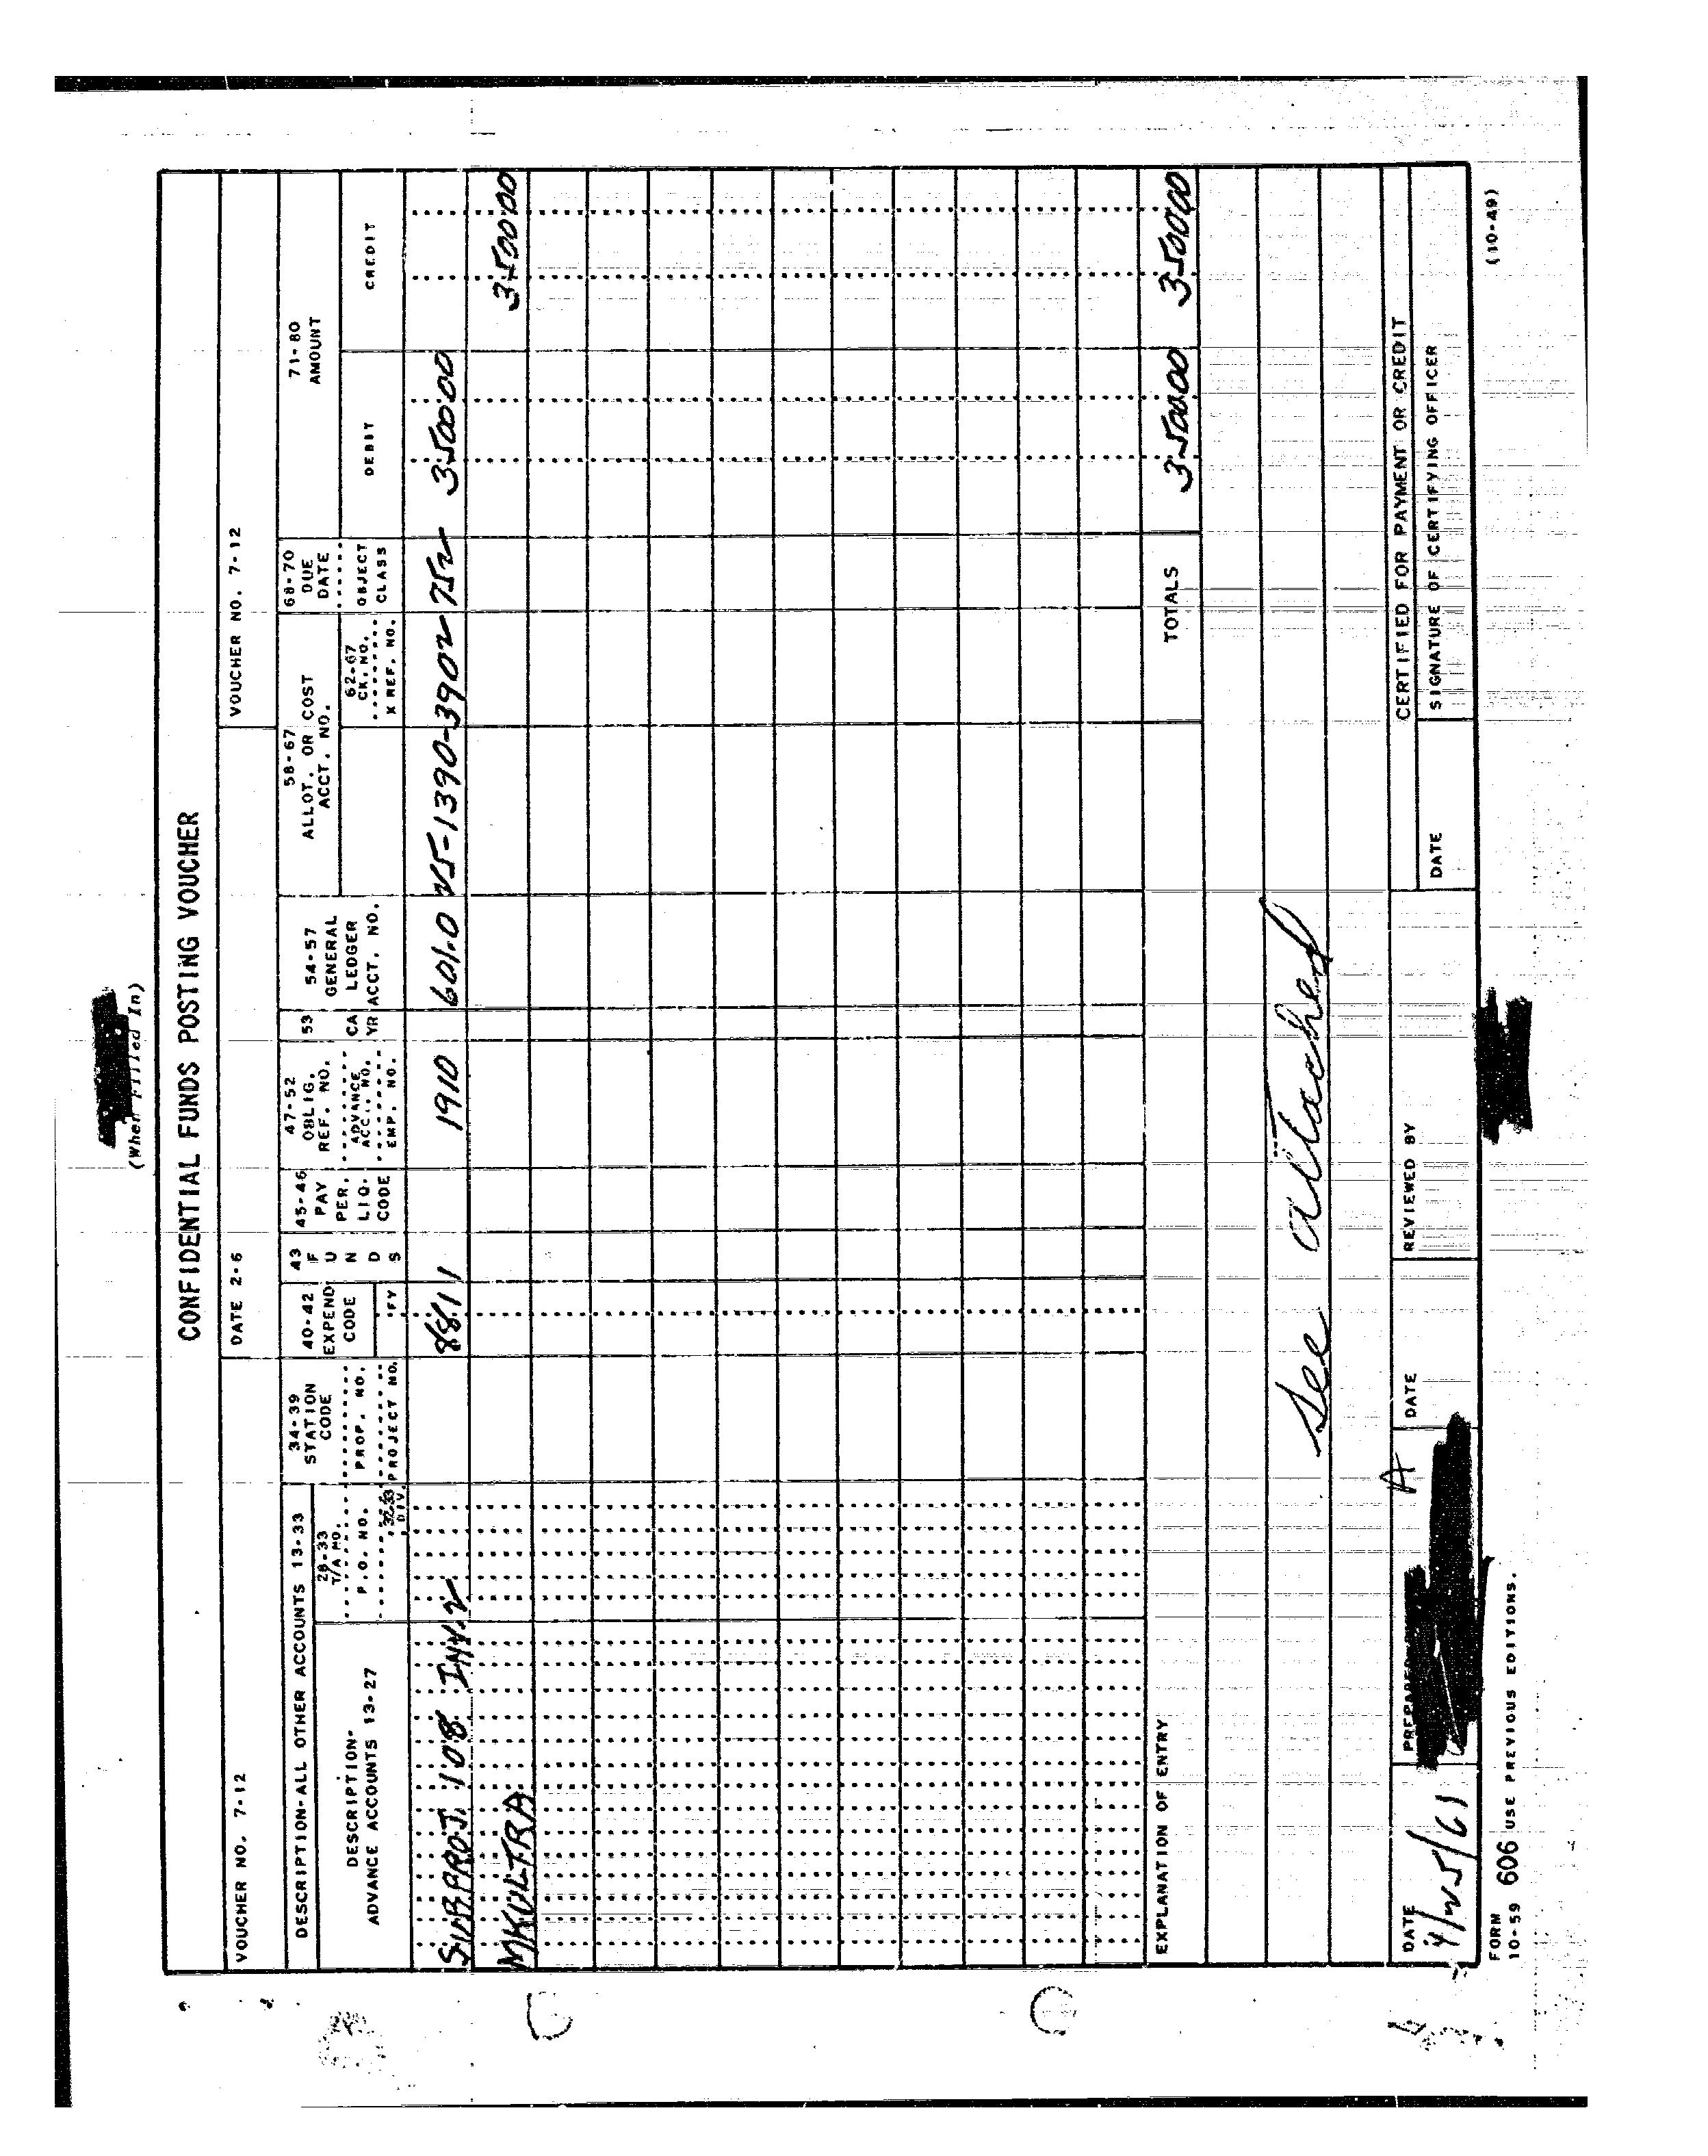 (When Filled In)
CONFIDENTIAL FUNDS POSTING VOUCHER
VOUCHER NO. 7-12 DATE 2-6 VOUCHER NO. 7-12
DESCRIPTION-ALL OTHER ACCOUNTS 13-33
DESCRIPTION-
ADVANCE ACCOUNTS 13-27
28-33
T/A NO.
P.O. NO.
32-33
DIV.
34-39
STATION
CODE
PROP. NO.
PROJECT NO.
40-42
EXPEND
CODE
FY
43
F
U
N
D
S
45-46
PAY
PER.
LIQ.
CODE
47-52
OBLIG.
REF. NO.
ADVANCE
ACCT. NO.
EMP. NO.
53
CA
YR
54-57
GENERAL
LEDGER
ACCT. NO.
58-67
ALLOT. OR COST
ACCT. NO.
62-67
CK. NO.
X REF. NO.
68-70
DUE
DATE
OBJECT
CLASS
71-80
AMOUNT
DEBIT CREDIT
SUBPROJ. 108 INV. 2 1910 601.0 25-1390-3902 752 3500.00
MKULTRA 3500.00
TOTALS 3500.00 3500.00
EXPLANATION OF ENTRY
See attached
CERTIFIED FOR PAYMENT OR CREDIT
DATE PREPARED DATE REVIEWED BY DATE SIGNATURE OF CERTIFYING OFFICER
4/25/61
FORM
10-59 606 USE PREVIOUS EDITIONS. (10-49)